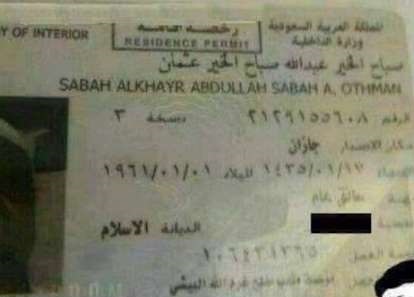 المملكة العربية السعودية
وزارة الداخلية
رخصة إقامة
RESIDENCE PERMIT
Y OF INTERIOR
صباح الخير عبدالله صباح الخير عثمان
SABAH ALKHAYR ABDULLAH SABAH A. OTHMAN
الرقم ٢١٢٩١٥٥٦٠٨ نسخة ٣
مكان الاصدار جازان
١٤٣٥/٠١/١٧ الميلاد ١٩٦١/٠١/٠١
سائق عام
الديانة الاسلام
العمل